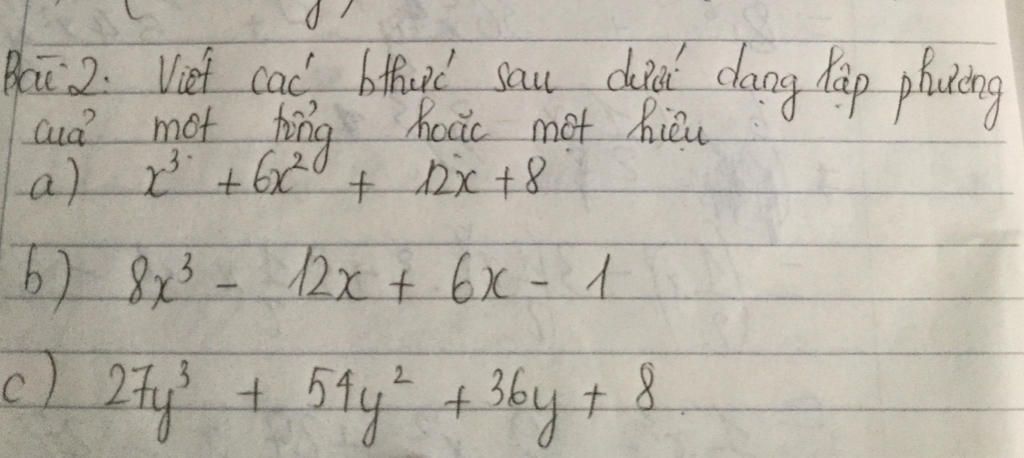 Bài 2: Viết các bthức sau dưới dạng lập phương
của một tổng hoặc một hiệu
a) x³ + 6x² + 12x + 8
b) 8x³ - 12x + 6x - 1
c) 27y³ + 54y² + 36y + 8